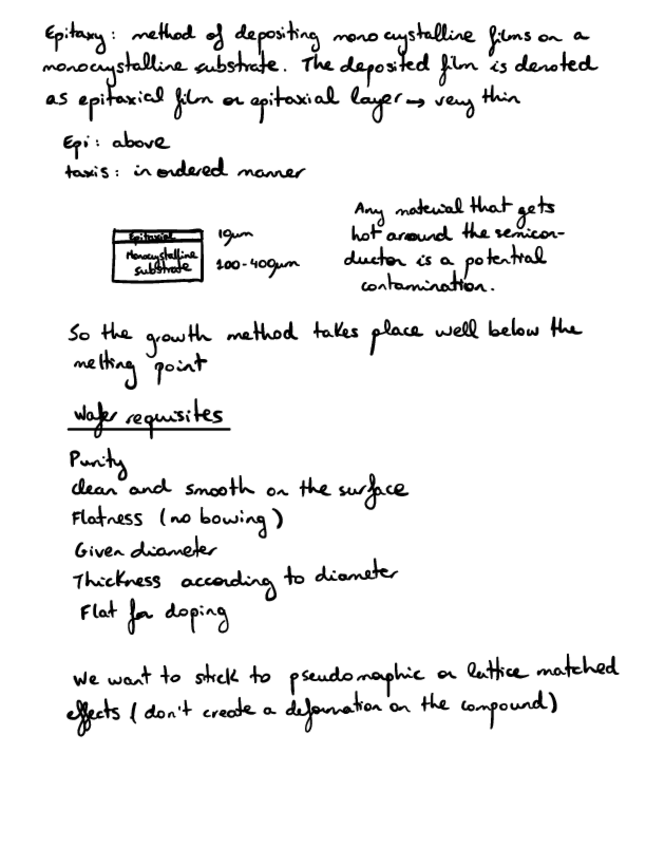 Epitaxy: method of depositing monocrystalline films on a
monocrystalline substrate. The deposited film is denoted
as epitaxial film or epitaxial layer → very thin
Epi: above
taxis: in ordered manner
Epitaxial
1μm
Monocrystalline
substrate
100-400μm
Any material that gets
hot around the semicon-
ductor is a potential
contamination.
So the growth method takes place well below the
melting point
Wafer requisites
Purity
clean and smooth on the surface
Flatness (no bowing)
Given diameter
Thickness according to diameter
Flat for doping
We want to stick to pseudomorphic or lattice matched
effects (don't create a deformation on the compound)